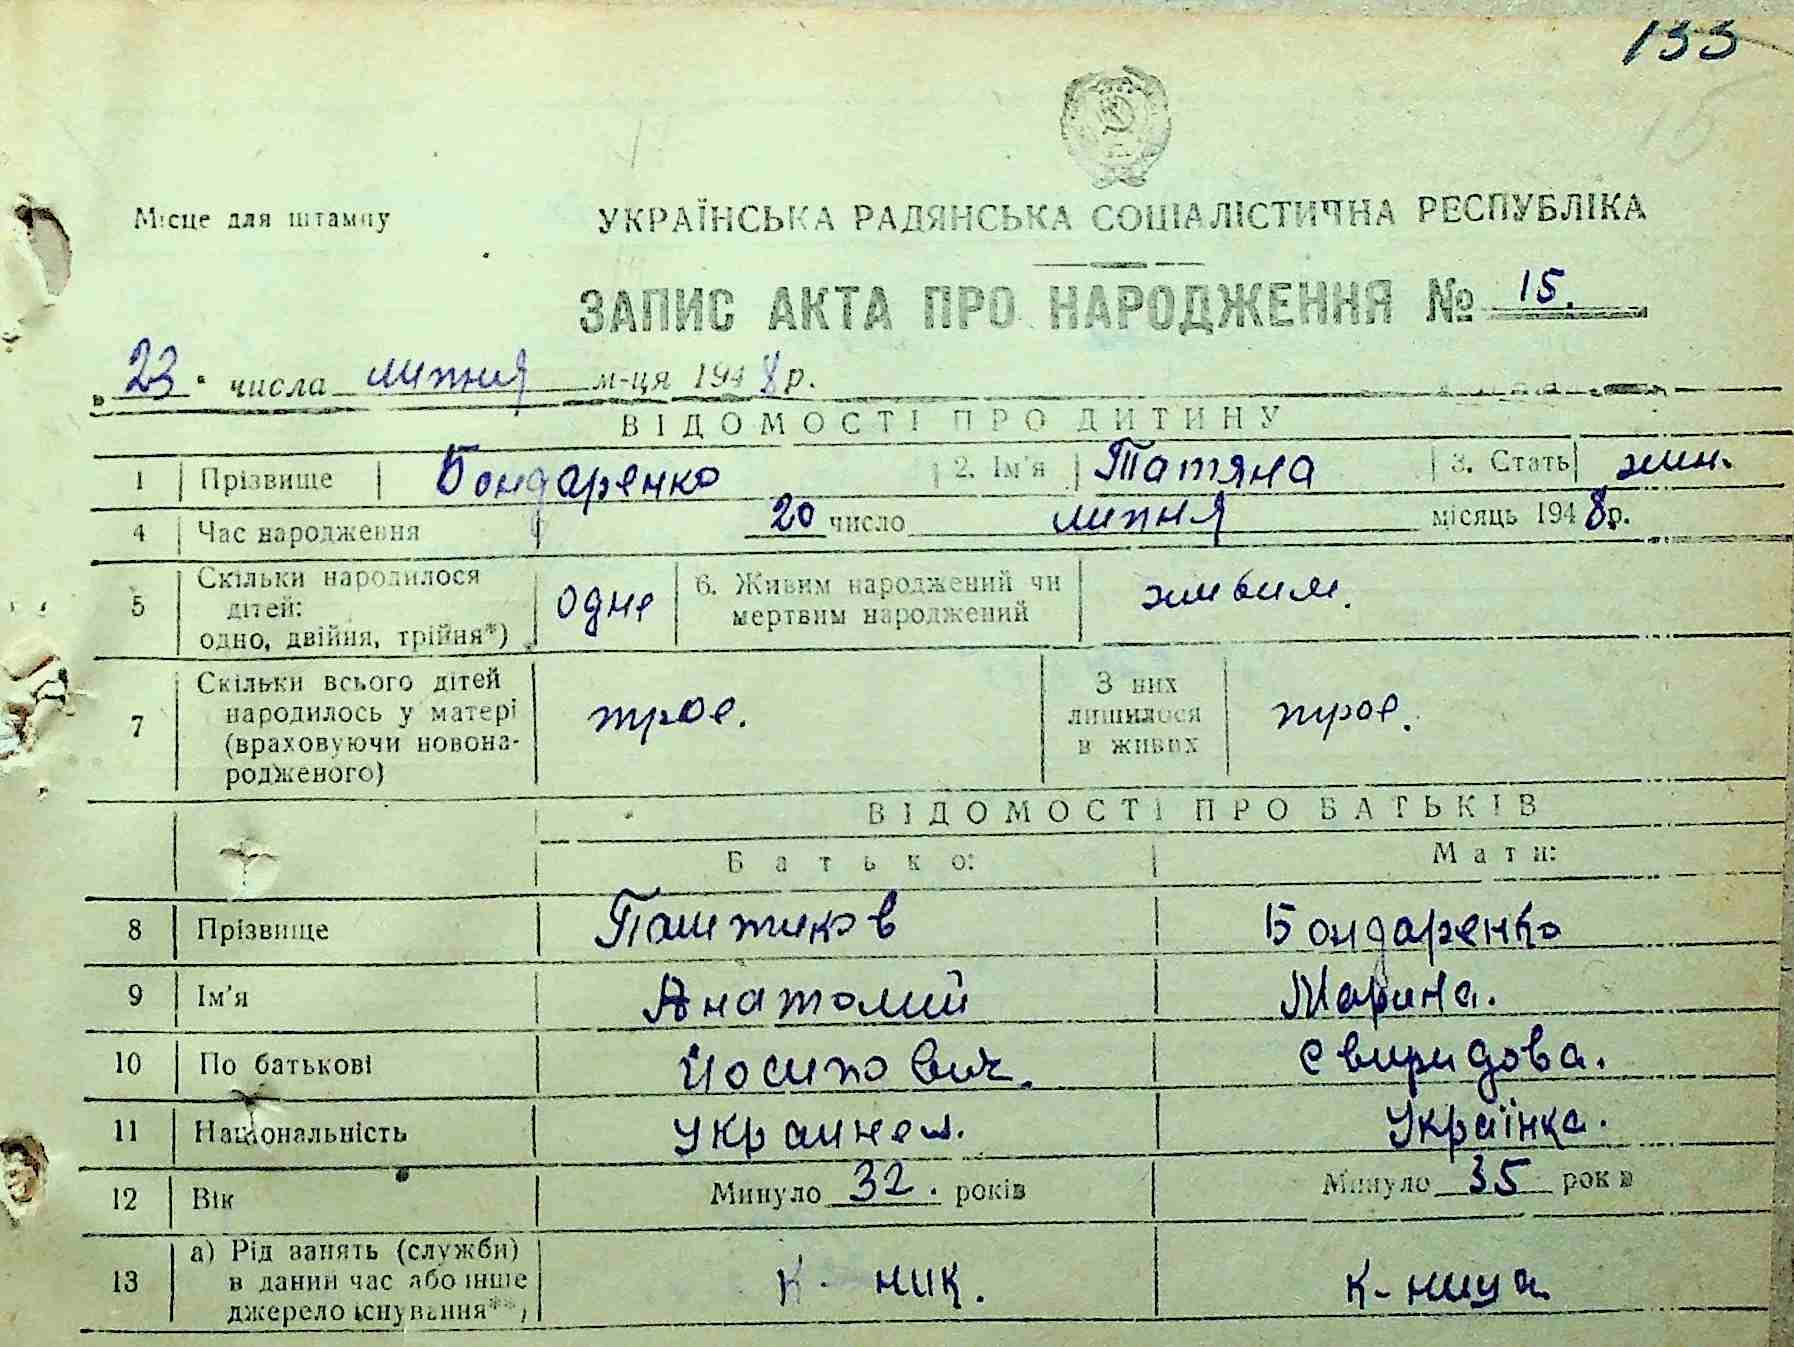 133
15
Місце для штампу
УКРАЇНСЬКА РАДЯНСЬКА СОЦІАЛІСТИЧНА РЕСПУБЛІКА
ЗАПИС АКТА ПРО НАРОДЖЕННЯ № 15.
в 23 числа липня м-ця 1948 р.
ВІДОМОСТІ ПРО ДИТИНУ
1 Прізвище Бондаренко 2. Ім'я Татяна 3. Стать жин.
4 Час народження 20 число липня місяць 1948 р.
5 Скільки народилося дітей: одно, двійня, трійня*) одне 6. Живим народжений чи мертвим народжений живим.
7 Скільки всього дітей народилось у матері (враховуючи новонародженого) троє. З них лишилося в живих троє.
ВІДОМОСТІ ПРО БАТЬКІВ
Батько: Мати:
8 Прізвище Паштиков Бондаренко
9 Ім'я Анатолий Марина.
10 По батькові Йосипович. Свиридова.
11 Національність украинец. Українка.
12 Вік Минуло 32. років Минуло 35 років
13 а) Рід занять (служби) в даний час або інше джерело існування**) к-ник. к-ница